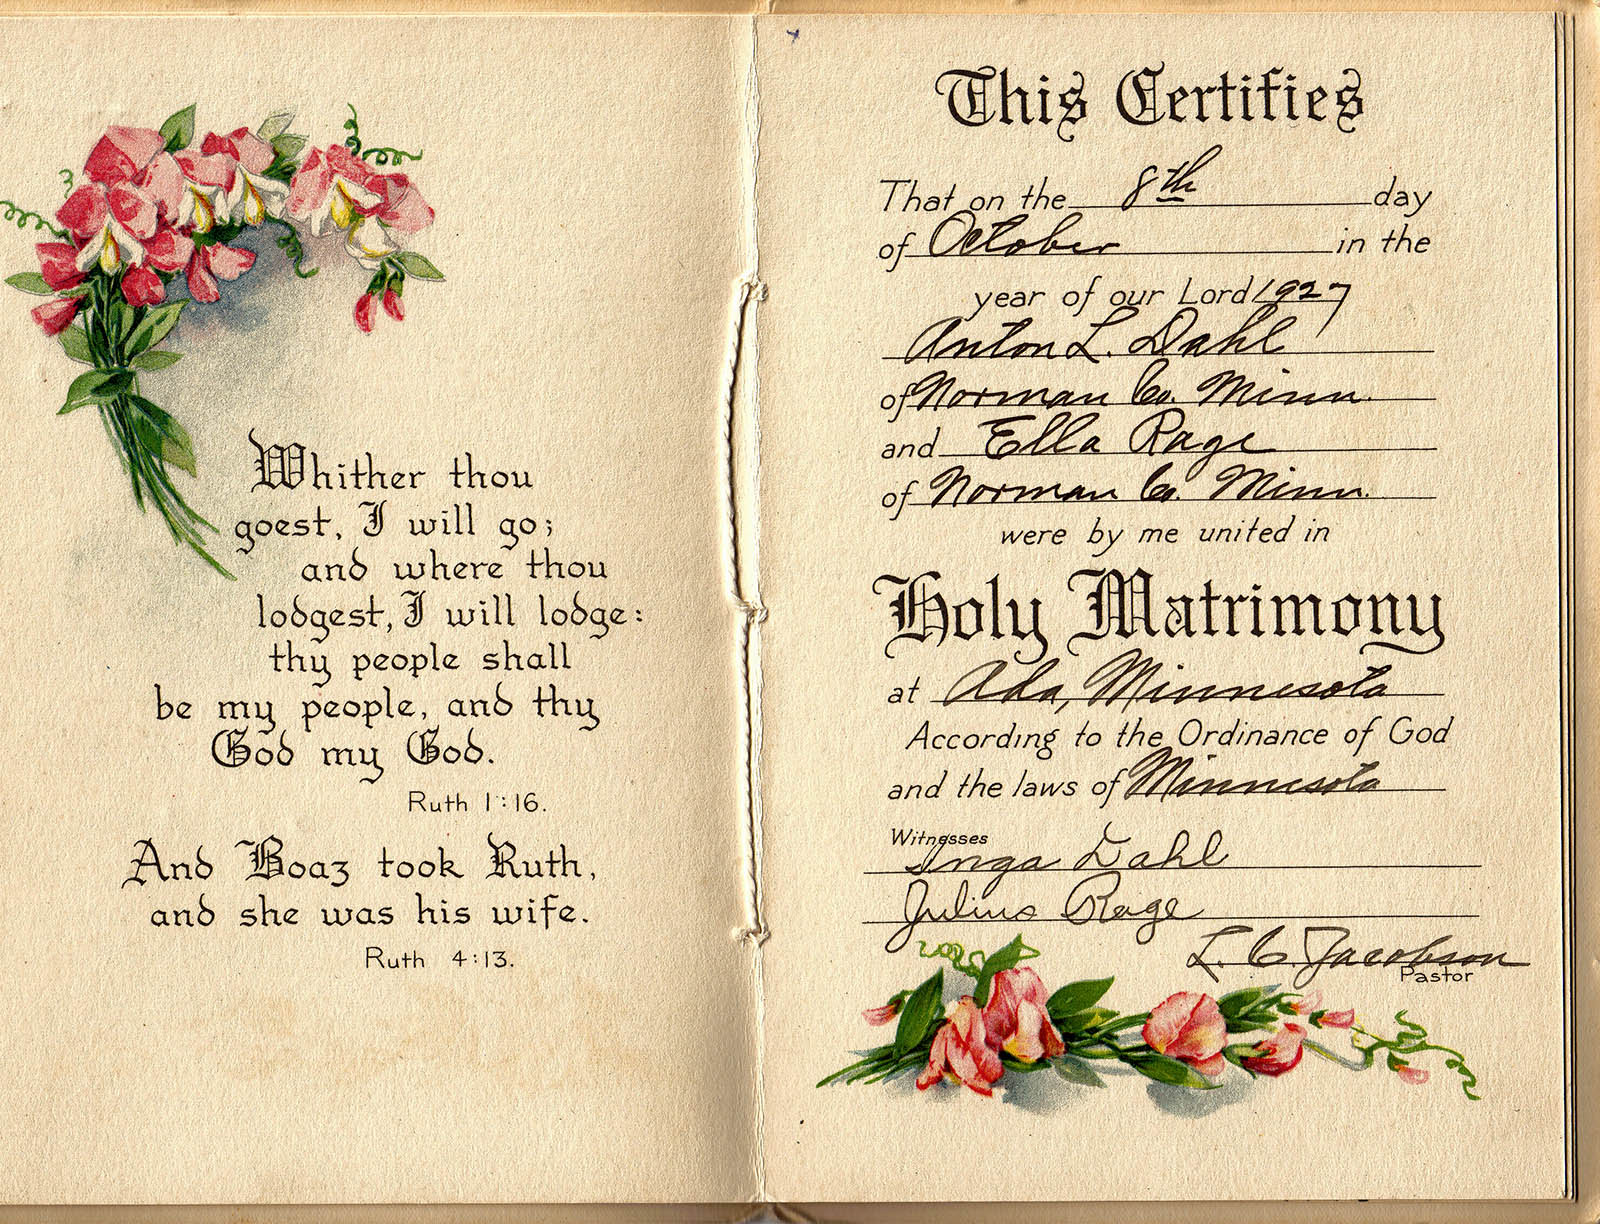 Whither thou
goest, I will go;
and where thou
lodgest, I will lodge:
thy people shall
be my people, and thy
God my God.
Ruth 1:16.
And Boaz took Ruth,
and she was his wife.
Ruth 4:13.
This Certifies
That on the 8th day
of October in the
year of our Lord 1927
Anton L. Dahl
of Norman Co. Minn.
and Ella Rage
of Norman Co. Minn.
were by me united in
Holy Matrimony
at Ada, Minnesota
According to the Ordinance of God
and the laws of Minnesota
Witnesses
Inga Dahl
Julius Rage
L. C. Jacobson
Pastor